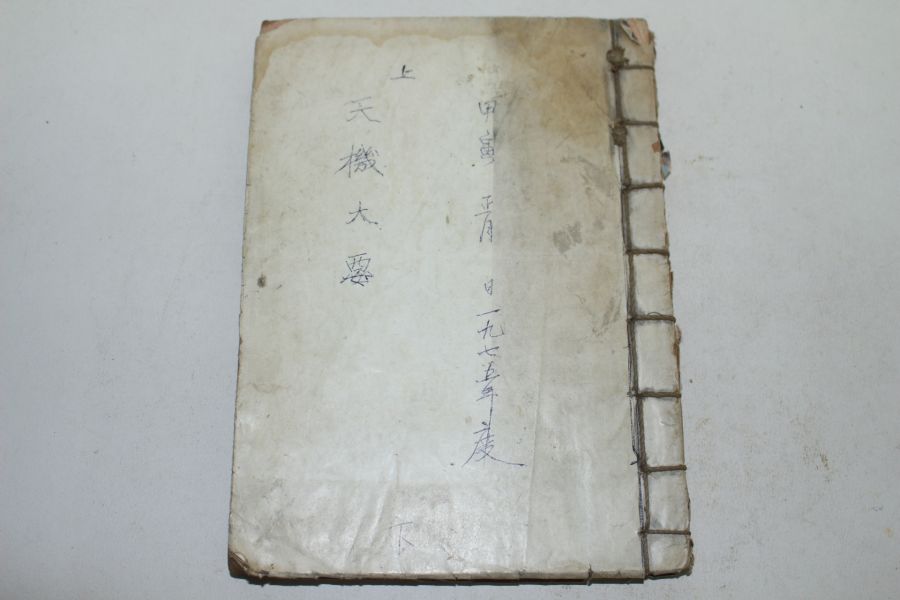 甲寅 正月 日 一九七五年度
上
天機大要
下